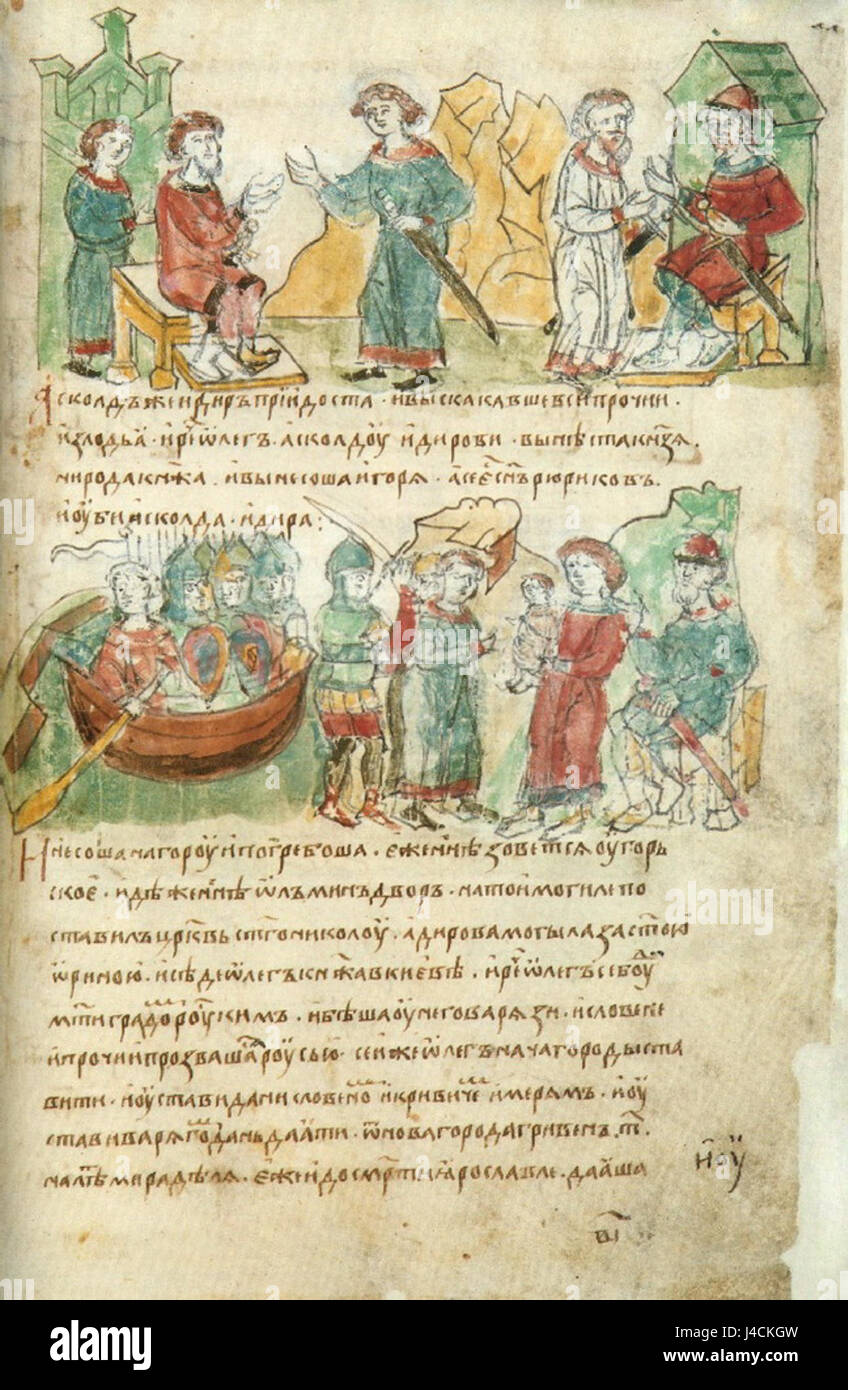 Асколдъ же и диръ прїидоста · и выскакавше вси прочии ·
из лодьѧ · и реⷱ ѡлегъ · асколдоу и дирови · вы нѣста кн҃зѧ
ни рода кнѧжа · и вынесоша игорѧ · а се еⷭ сн҃ъ рюриковъ ·
и оуби асколда · и дира :
И несоша на гороу и погребоша · еже н҃нѣ зоветсѧ оугорь
скоє · идѣже н҃нѣ ѡлъминъ дворъ · на тои могиле по
ставилъ црк҃вь ст҃го николоу · а дирова могыла за ст҃ою
ѡриною · и сѣде ѡлегъ кнѧжа в киевѣ · и реⷱ ѡлегъ се боуⷣ
мт҃и градоⷨ роускимъ · и бѣша оу него варѧзи · и словене
и прочии прозвашаⷭ роусью · сеи же ѡлегъ нача городы ста
вити · и оустави дани словеноⷨ и кривичеⷨ и мерѧмъ · и оу
стави варѧгоⷨ дань даѧти · ѿ новагорода гривенъ · т҃ ·
на лѣⷮ мира дѣлѧ · еже и до смр҃ти ӕрославле · даӕша
и оу
alamy
Image ID: J4CKGW
www.alamy.com